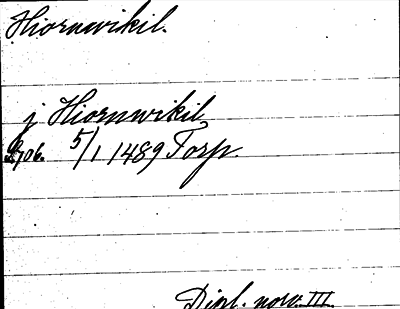 Hiornwikil.
j Hiornwikil
706. 5/1 1489 Torp.
Dipl. norv. III.